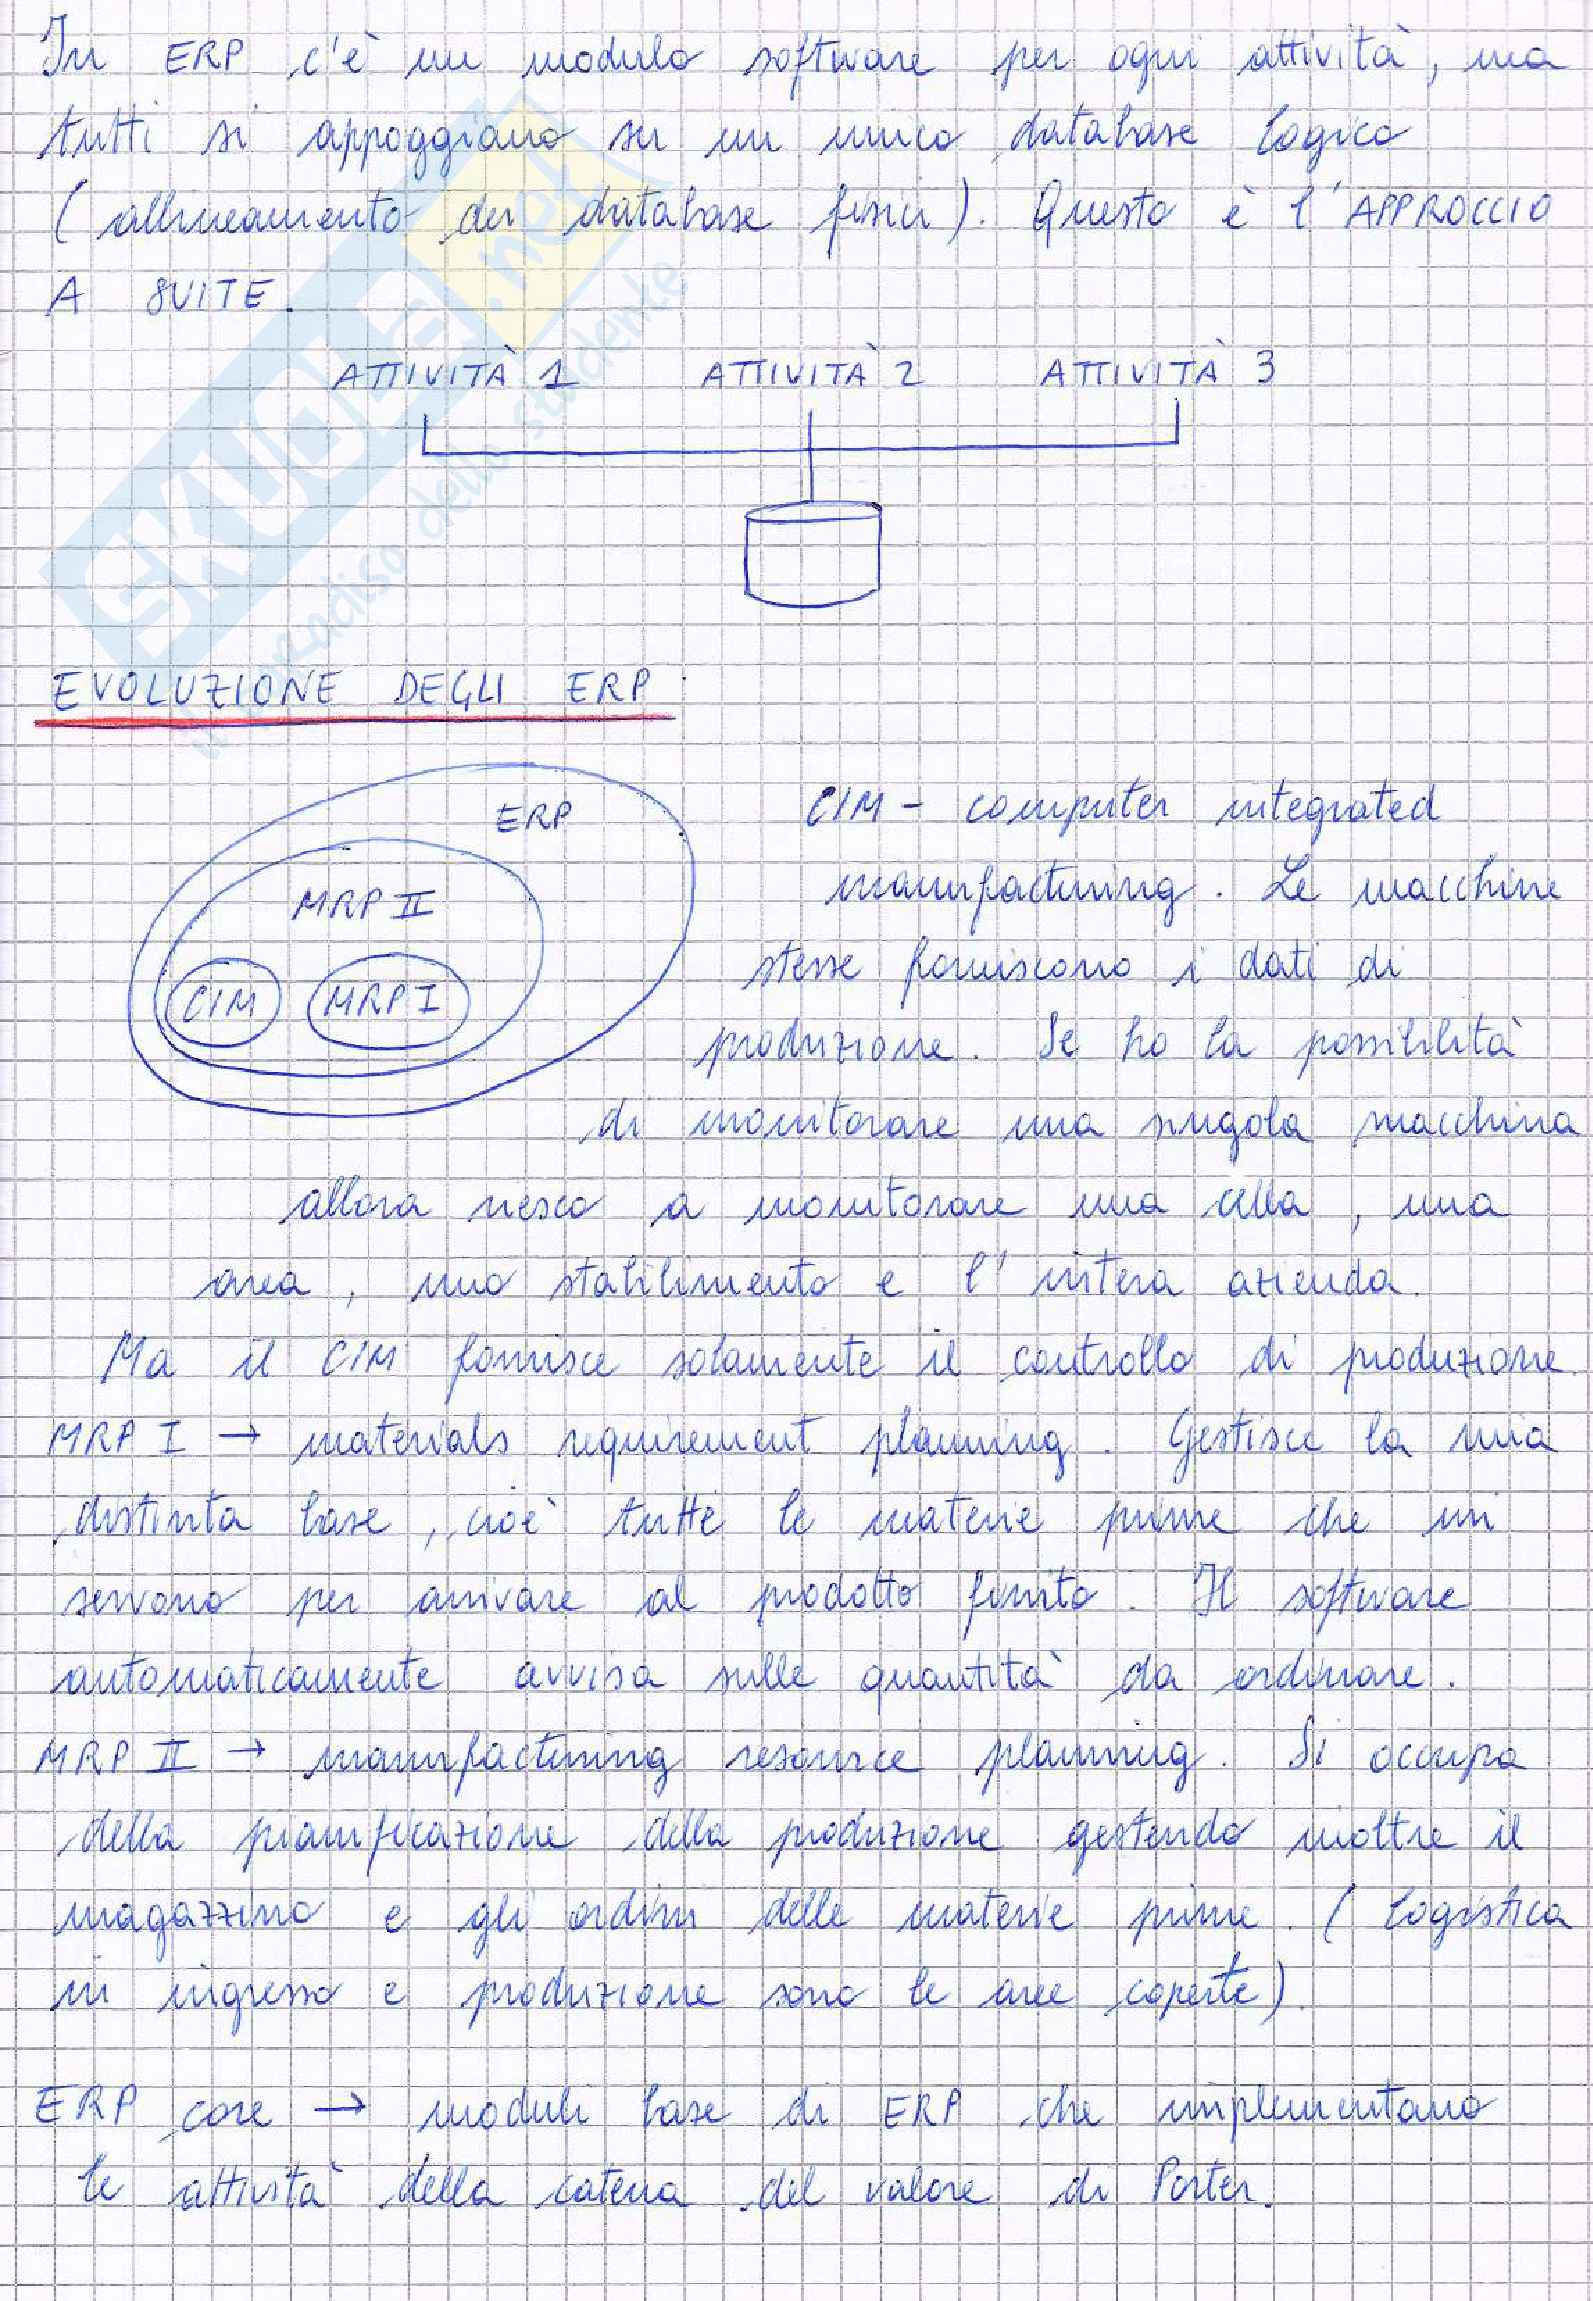 In ERP c'è un modulo software per ogni attività, ma
tutti si appoggiano su un unico database logico
(allineamento dei database fisici). Questo è l'APPROCCIO
A SUITE.
ATTIVITÀ 1 ATTIVITÀ 2 ATTIVITÀ 3
EVOLUZIONE DEGLI ERP
ERP
MRP II
CIM MRP I
CIM - computer integrated
manufacturing. Le macchine
stesse forniscono i dati di
produzione. Se ho la possibilità
di monitorare una singola macchina
allora riesco a monitorare una cella, una
area, uno stabilimento e l'intera azienda.
Ma il CIM fornisce solamente il controllo di produzione.
MRP I → materials requirement planning. Gestisce la mia
distinta base, cioè tutte le materie prime che mi
servono per arrivare al prodotto finito. Il software
automaticamente avvisa sulle quantità da ordinare.
MRP II → manufacturing resource planning. Si occupa
della pianificazione della produzione gestendo inoltre il
magazzino e gli ordini delle materie prime. (logistica
in ingresso e produzione sono le aree coperte)
ERP core → moduli base di ERP che implementano
le attività della catena del valore di Porter.
SKUOLA.net
il paradiso dello studente